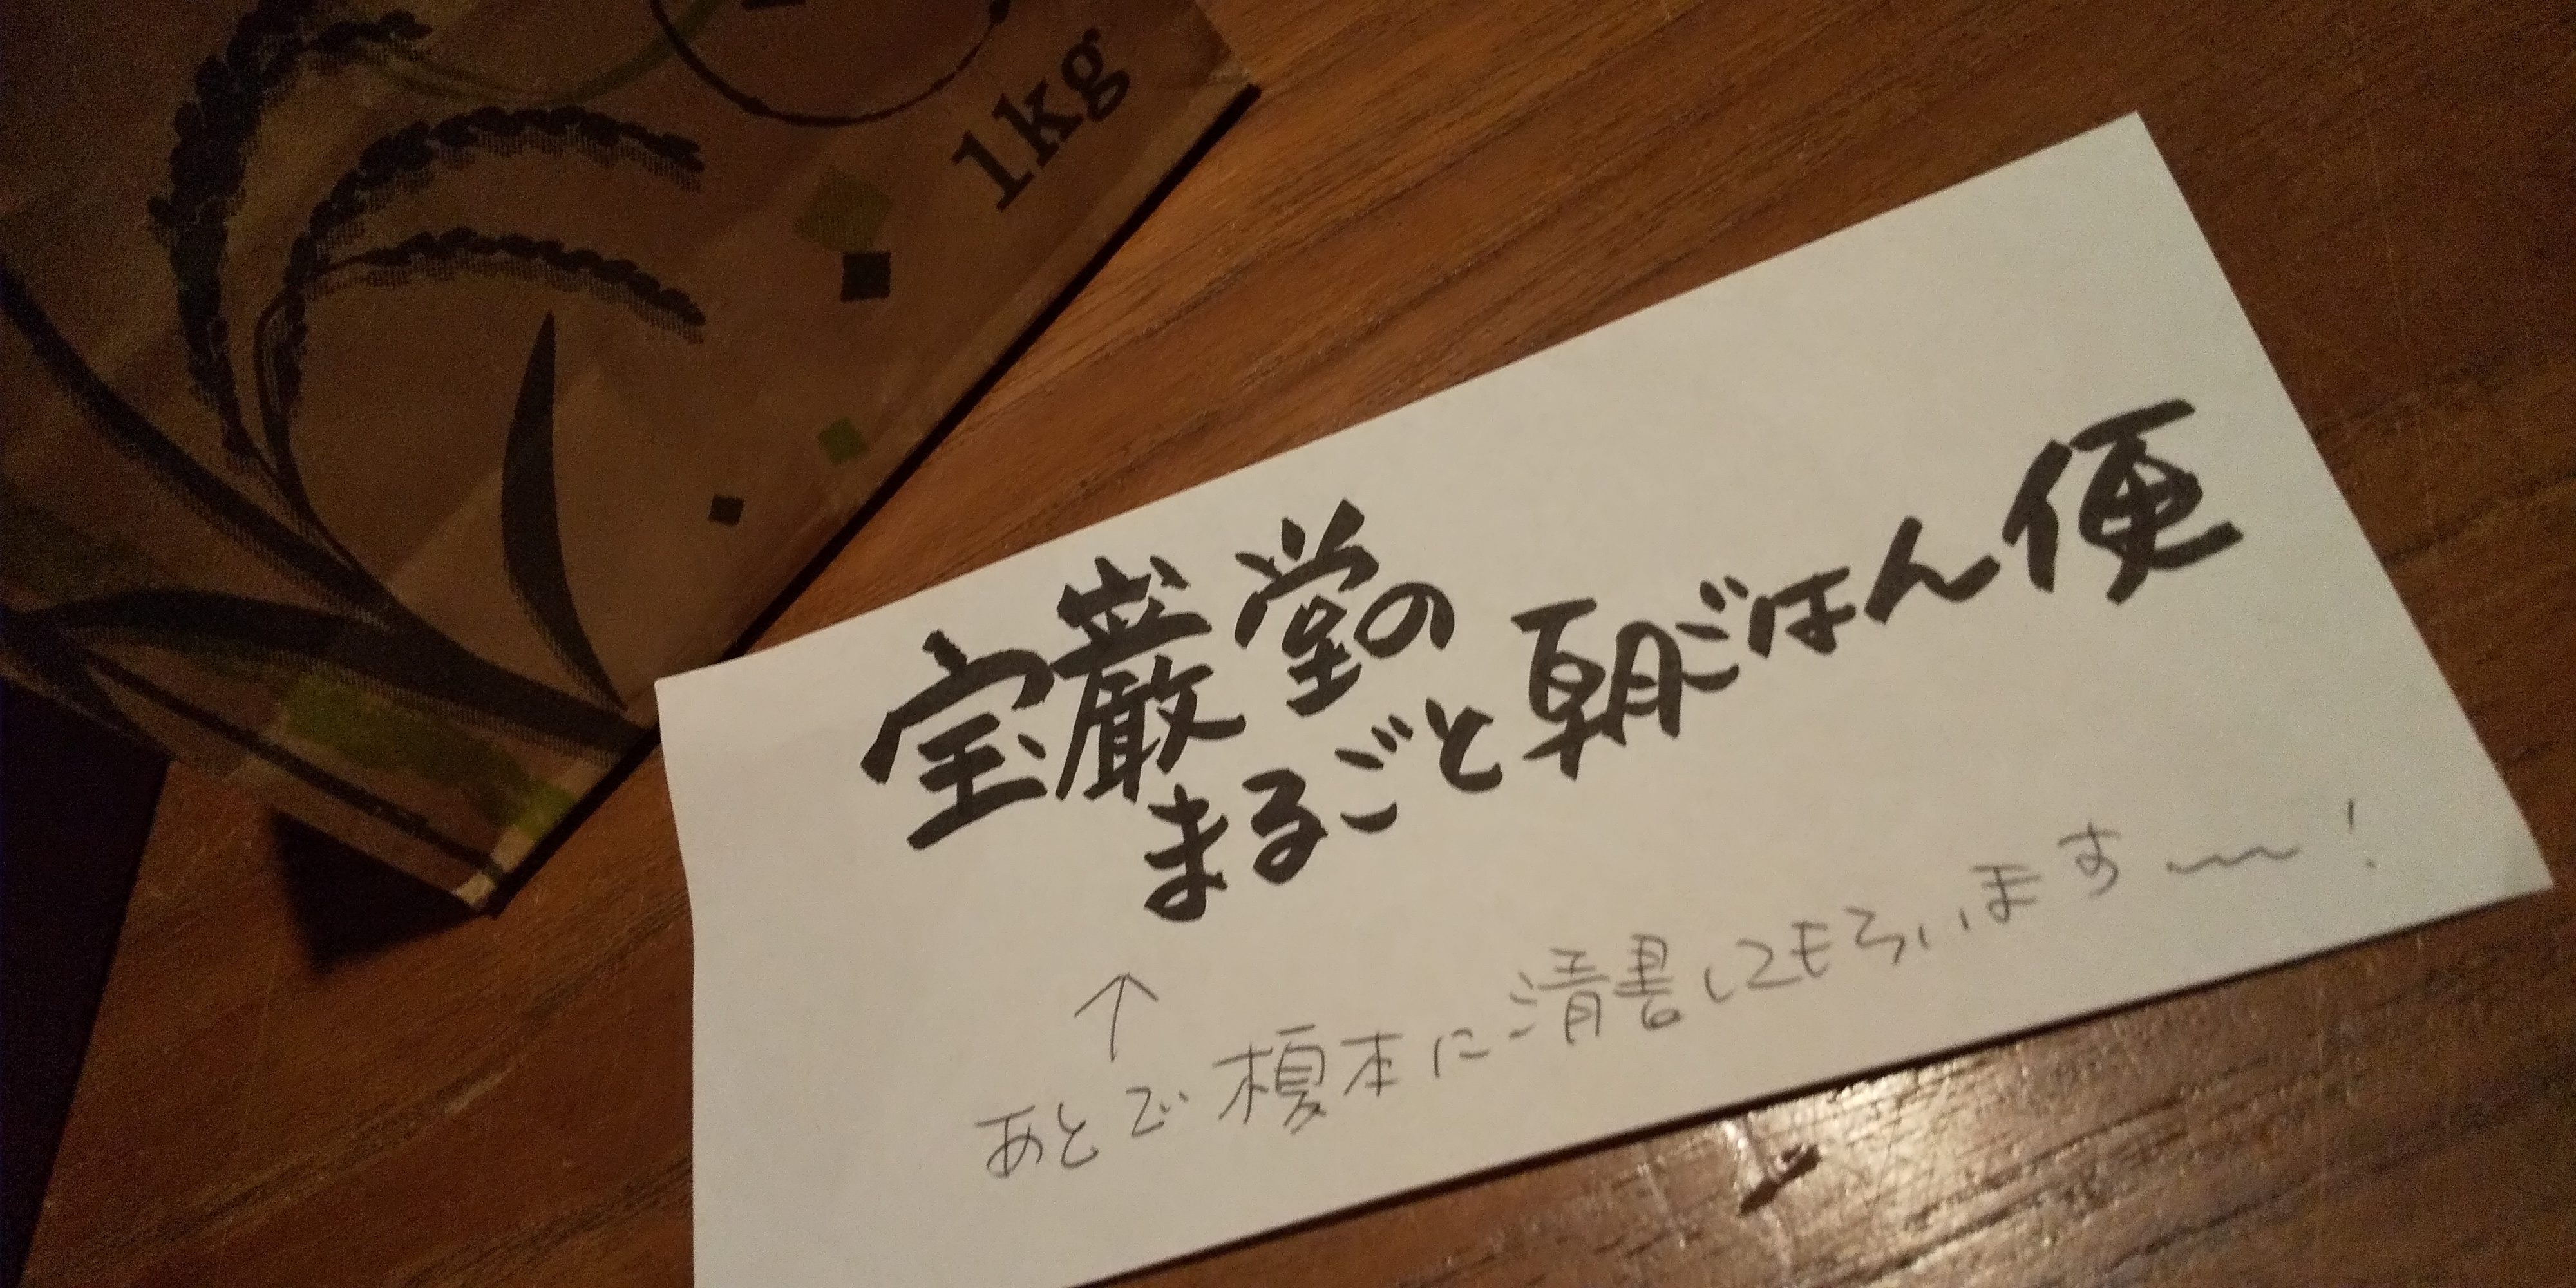 1kg
宝厳堂の
まるごと朝ごはん便
↑
あとで榎本に清書してもらいます〜!